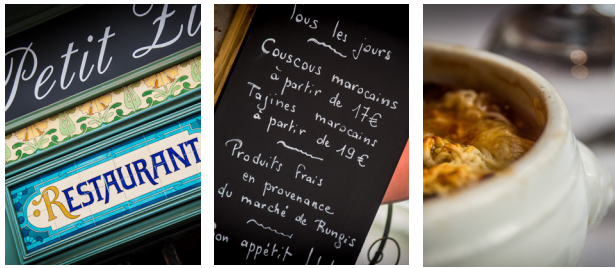 Petit
RESTAURANT
Tous les jours
Couscous marocains
à partir de 17€
Tajines marocains
à partir de 19€
Produits frais
en provenance
du marché de Rungis
Bon appétit !